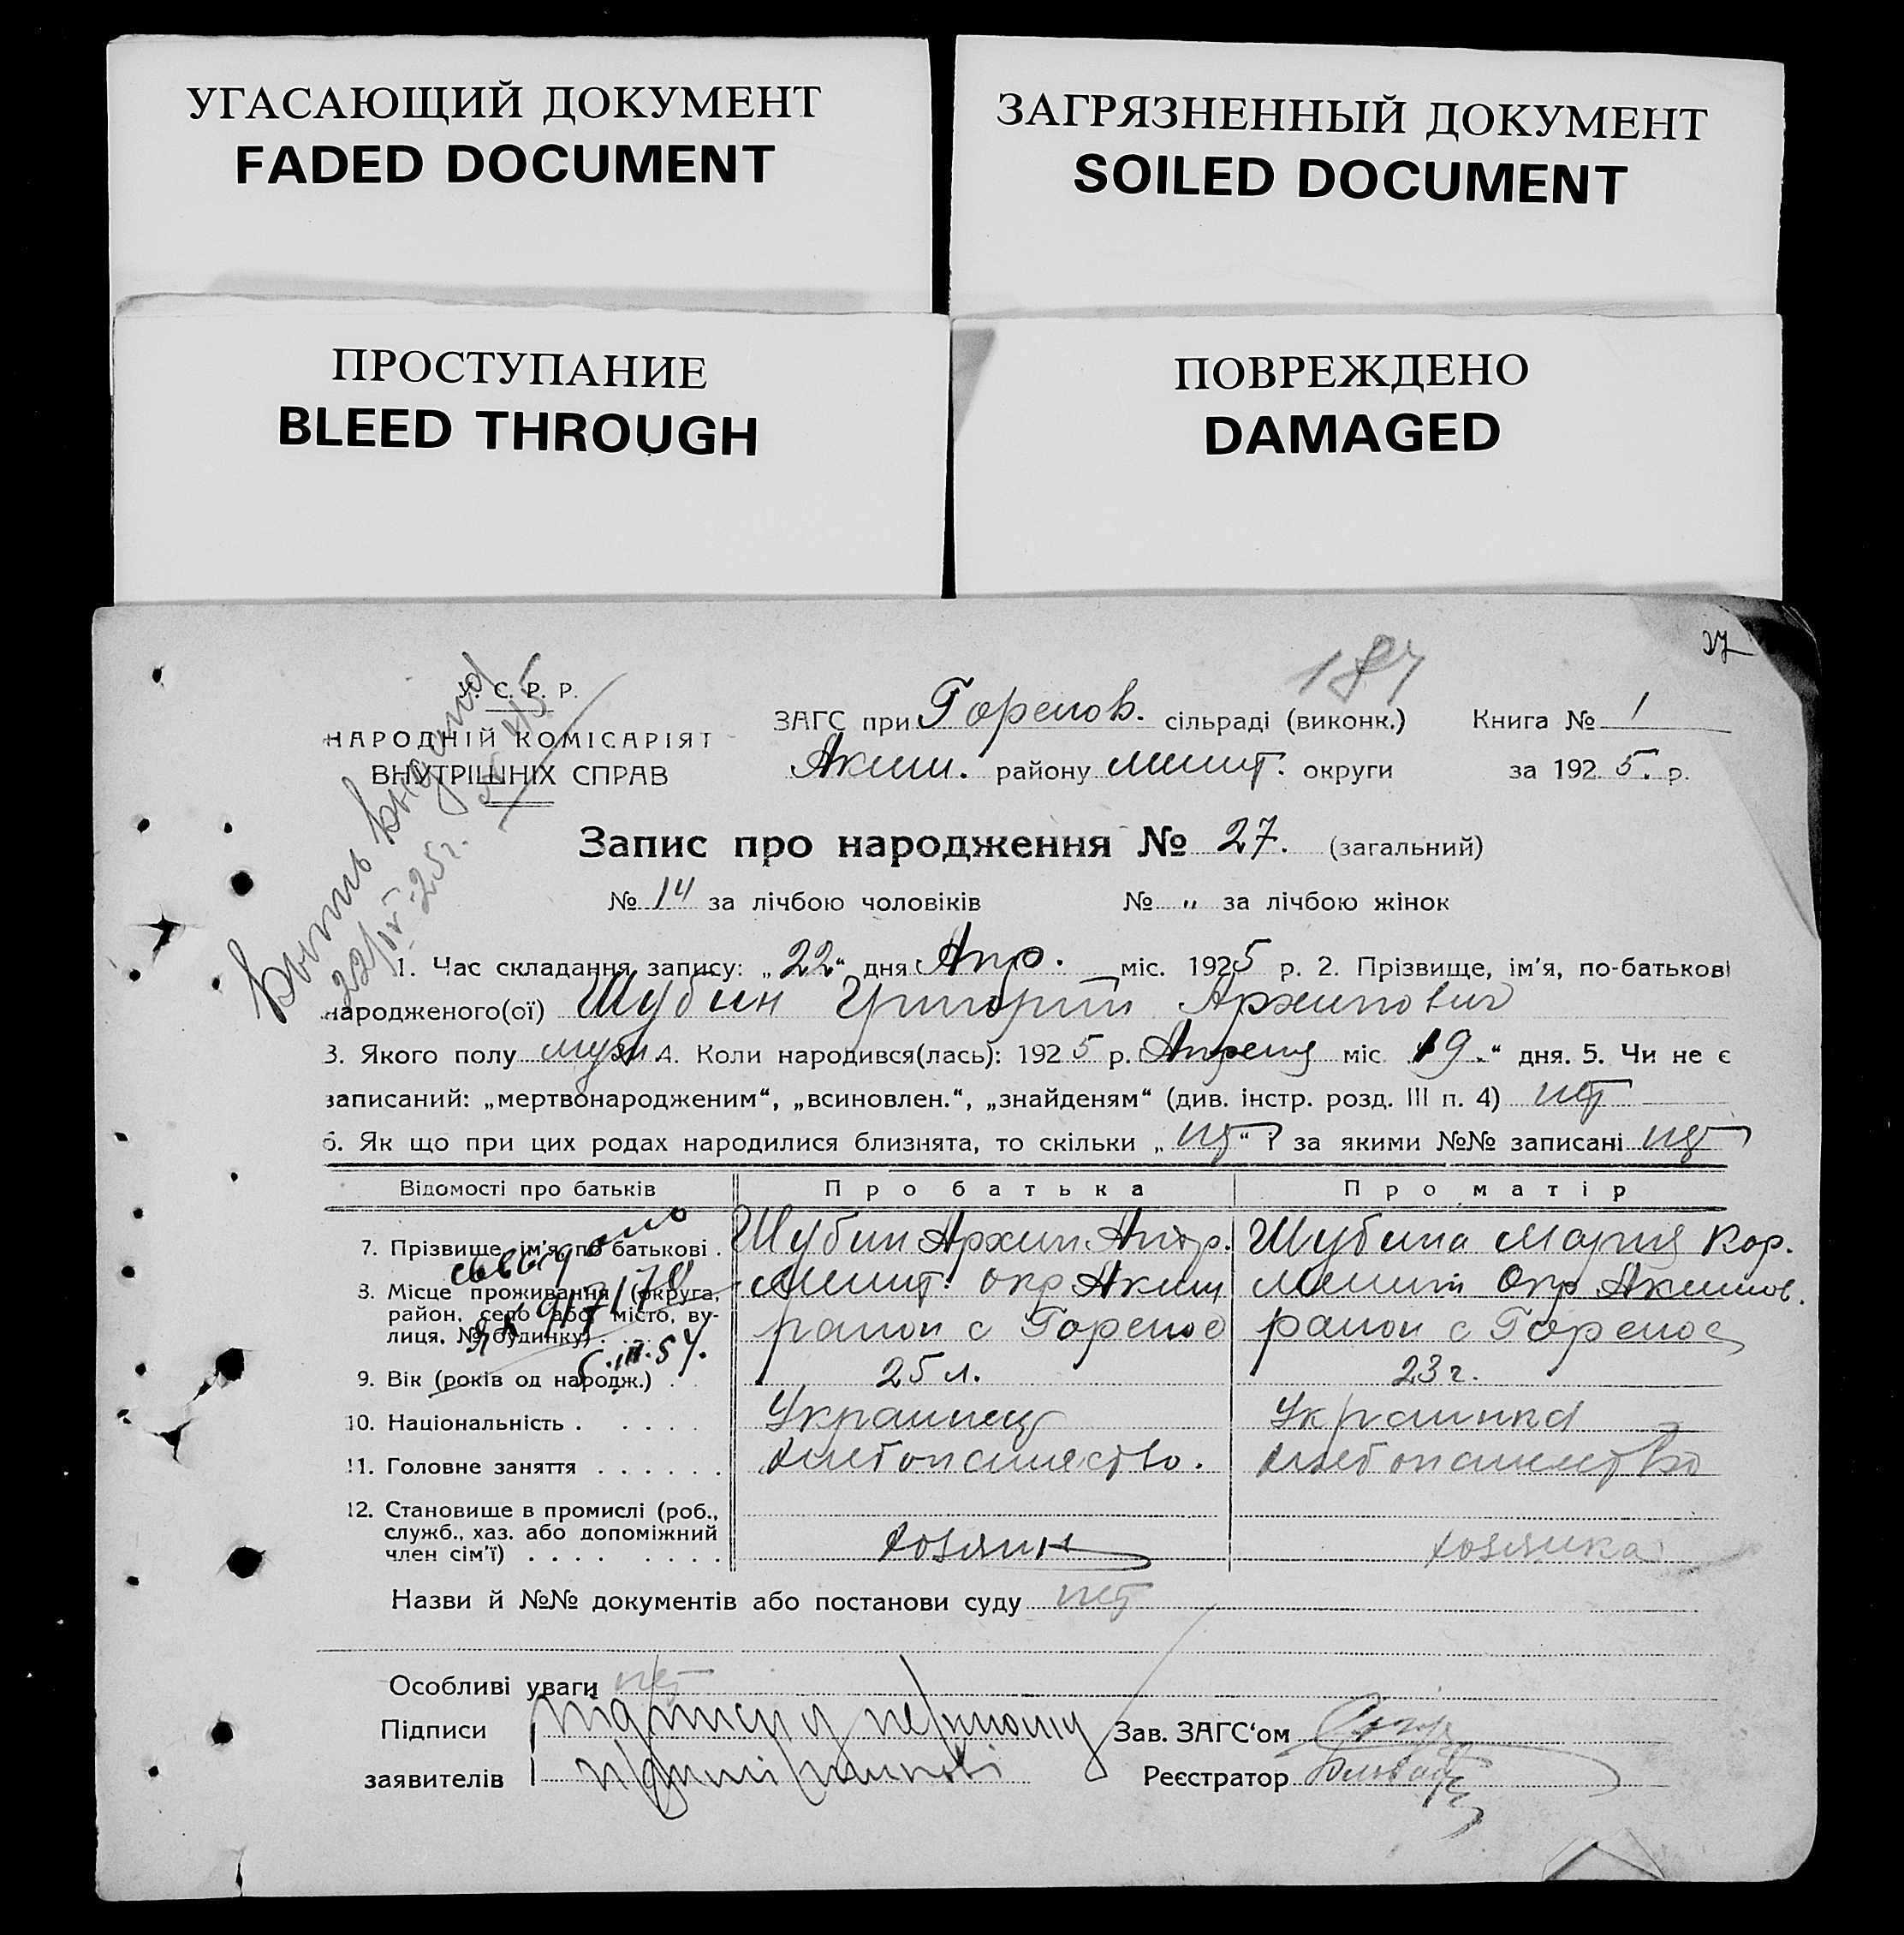 УГАСАЮЩИЙ ДОКУМЕНТ
FADED DOCUMENT
ЗАГРЯЗНЕННЫЙ ДОКУМЕНТ
SOILED DOCUMENT
ПРОСТУПАНИЕ
BLEED THROUGH
ПОВРЕЖДЕНО
DAMAGED
27
184
У. С. Р. Р.
НАРОДНІЙ КОМІСАРІЯТ
ВНУТРІШНІХ СПРАВ
ЗАГС при Горелов. сільраді (виконк.) Книга № 1
Аким. району Мелит. округи за 1925. р.
выпись выдана
22/IV-25г.
Запис про народження № 27. (загальний)
№ 14 за лічбою чоловіків № „ за лічбою жінок
1. Час складання запису: „22“ дня Апр. міс. 1925 р. 2. Прізвище, ім'я, по-батькові
народженого(ої) Шубин Григорий Архипович
3. Якого полу муж 4. Коли народився(лась): 1925 р. Апреля міс „19.“ дня. 5. Чи не є
записаний: „мертвонародженим“, „всиновлен.“, „знайденям“ (див. інстр. розд. III п. 4) нет
6. Як що при цих родах народилися близнята, то скільки „нет“ і за якими №№ записані нет
Відомості про батьків Про батька Про матір
7. Прізвище, ім'я, по батькові . Шубин Архип Шубина Мария Кор.
8. Місце проживання (округа, район, село або місто, вулиця, № будинку) Мелит. окр Аким Мелит Окр Акимов.
район с Горелое район с Горелое
9. Вік (років од народж.) . . 25 л. 23 г.
10. Національність . . . . . Украинец Украинка
11. Головне заняття . . . . . . хлебопашество. хлебопашество
12. Становище в промислі (роб., служб., хаз. або допоміжний член сім'ї) . . . . . . . . . хозяин хозяика
Назви й №№ документів або постанови суду нет
Особливі уваги нет
Підписи Зав. ЗАГС‘ом
заявителів Реєстратор